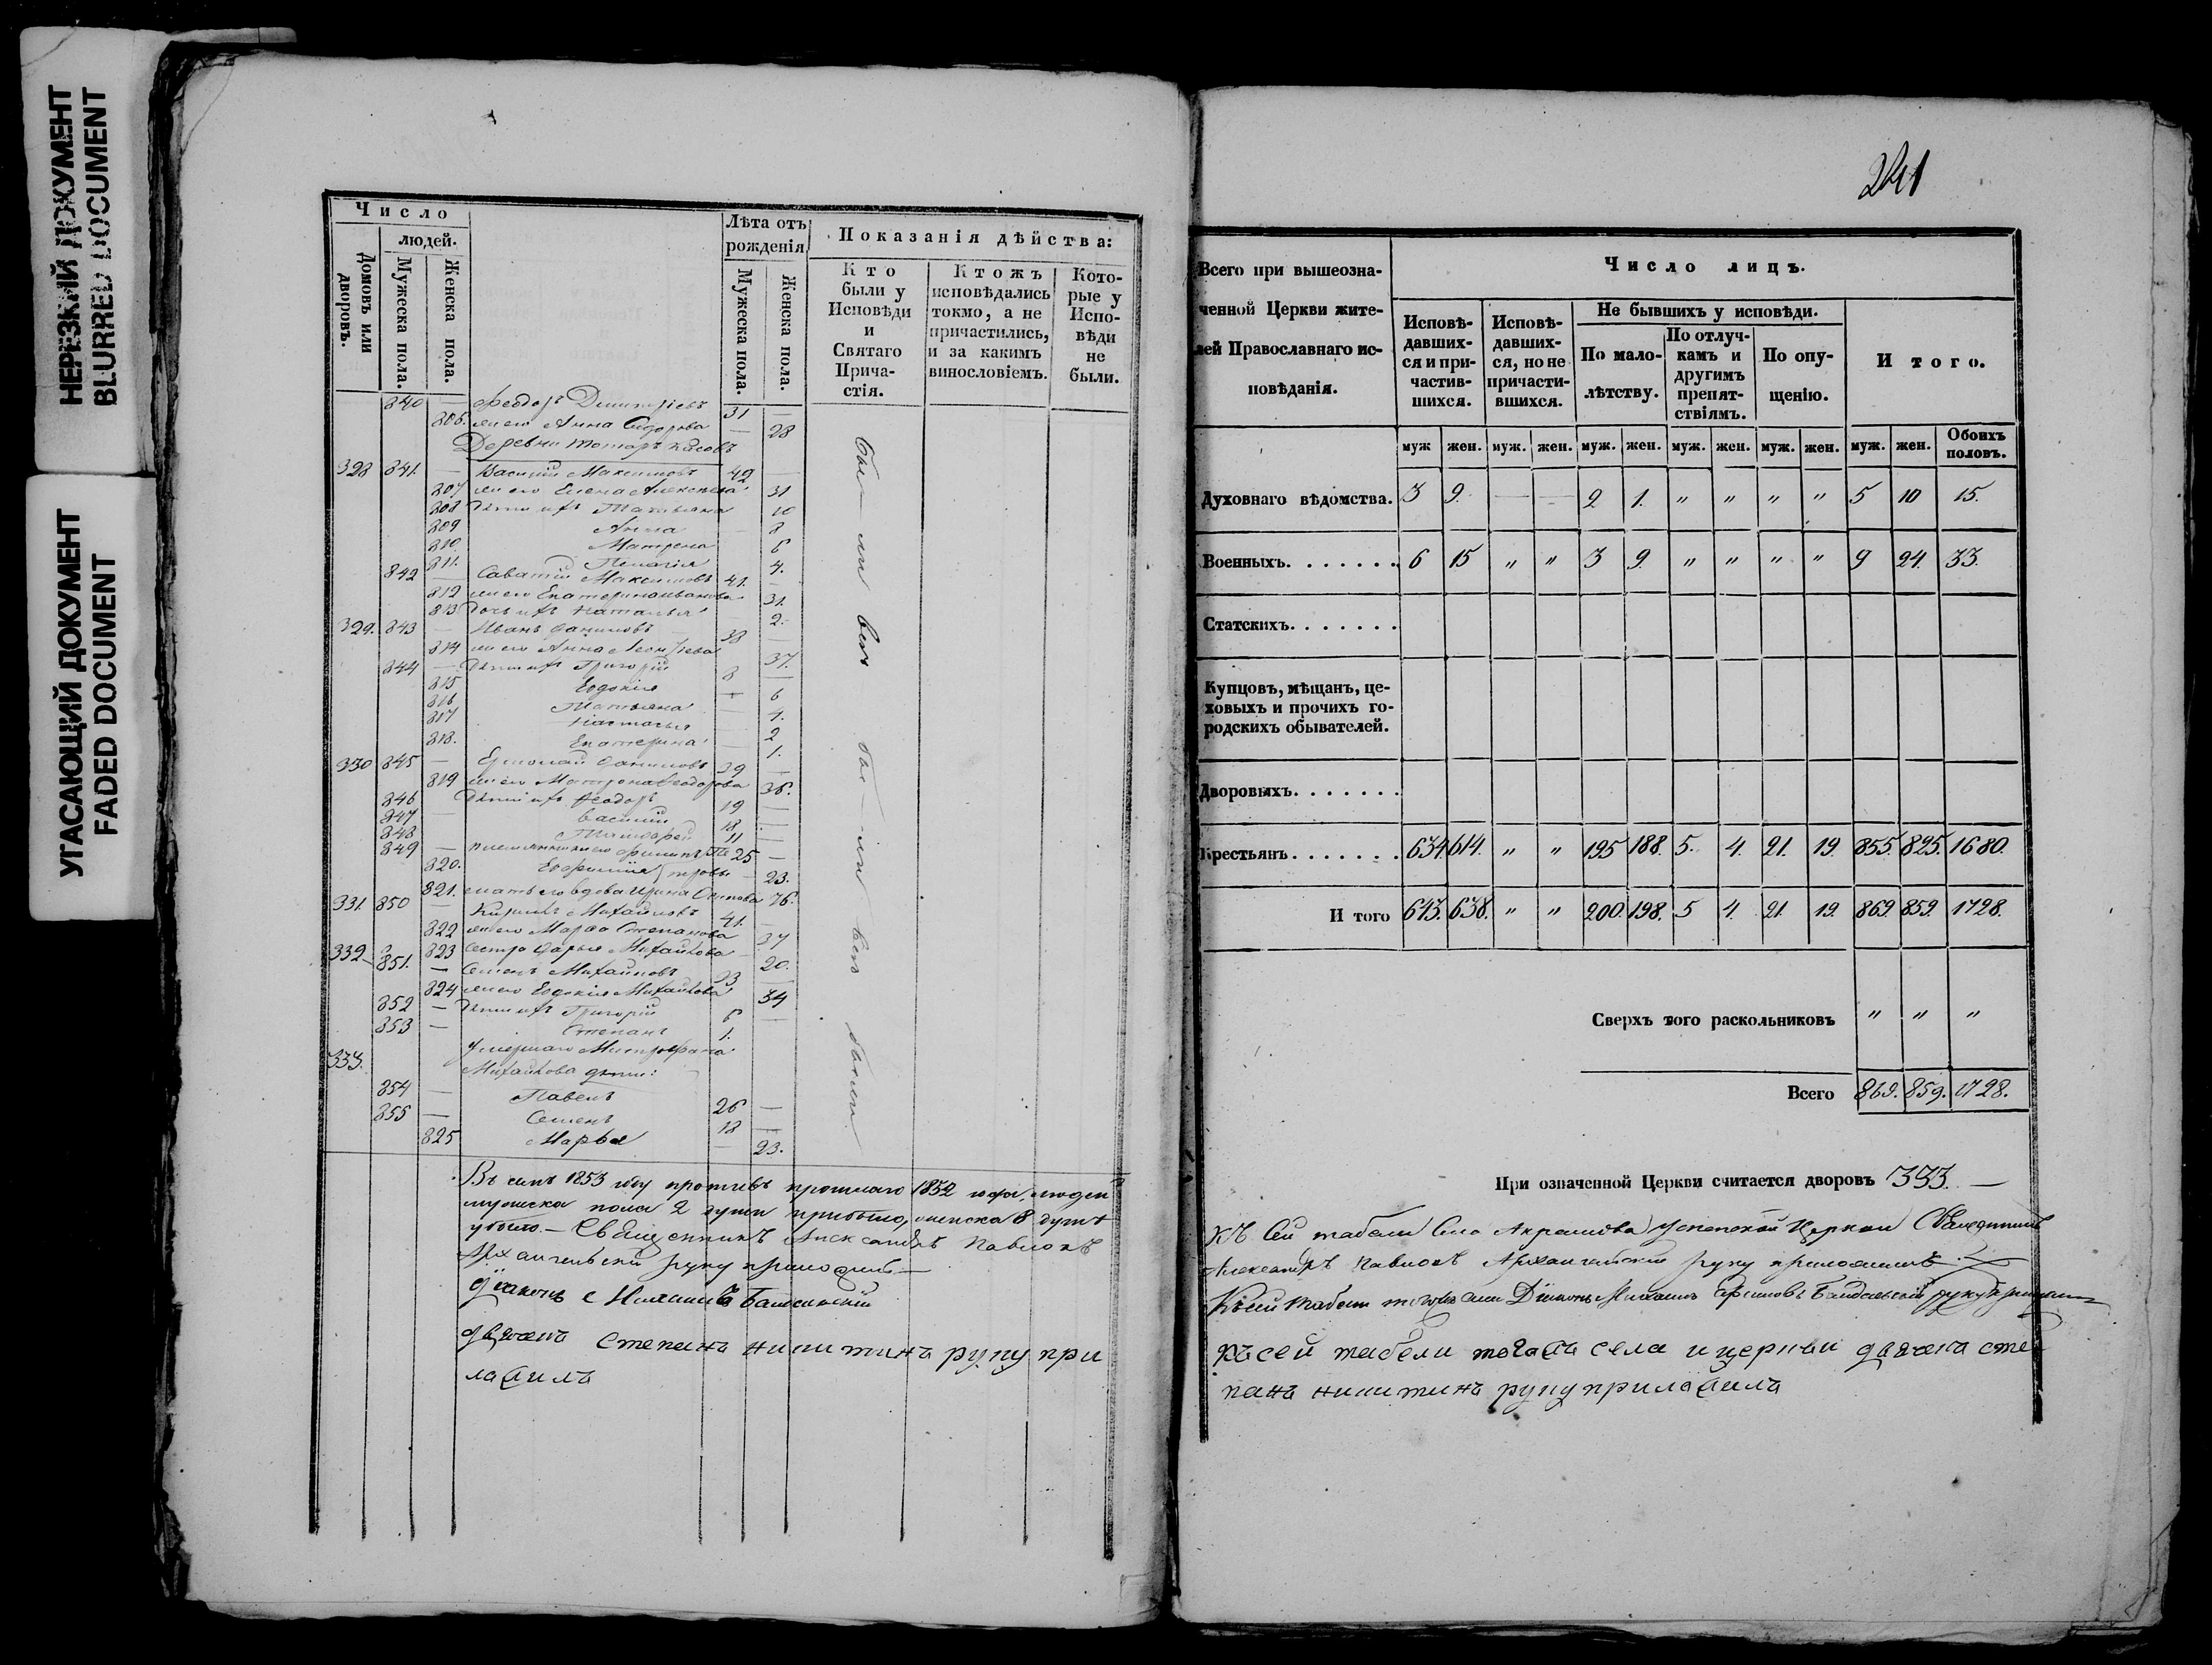 НЕРЕЗКИЙ ДОКУМЕНТ
BLURRED DOCUMENT
УГАСАЮЩИЙ ДОКУМЕНТ
FADED DOCUMENT
Число
людей.
Домовъ или дворовъ.
Мужеска пола.
Женска пола.
Лѣта отъ рожденія
Мужеска пола.
Женска пола.
Показанія дѣйства:
Кто были у Исповѣди и Святаго Прича-стія.
Ктожъ исповѣдались токмо, а не причастились, и за какимъ винословіемъ.
Кото-рые у Испо-вѣди не были.
840 — Феодоръ Димитріевъ 31 —
806. жена его Анна — 28
Деревни
328 841. — Василій Максимовъ 42 —
807 жена его Елена Алексѣева 31
808 Дѣти ихъ Татьяна 10
809 Анна 8
810. Матрена 6
811. Пелагія 4.
842 — Савватій Максимовъ 41. —
812 жена его Екатерина Иванова 31.
813 Дочь ихъ Наталья 2.
329. 843 — Иванъ Даниловъ 38 —
814 жена его Анна Леонтьева 37.
844 — Дѣти ихъ Григорій 8 —
815 Евдокія 6
816 Татьяна 4.
817 Настасья 2
818. Екатерина 1.
330 845 — Ермолай Даниловъ 39 —
819 жена его Матрона Феодорова 36.
846 Дѣти ихъ Феодоръ 19 —
847 — Василій 18 —
848 Тимофей 11 —
849 — Филиппъ 25 —
820. Евфимія 23.
821. мать его вдова Ирина 76.
331. 850 — Кириллъ Михайловъ 41. —
822 жена его Марфа Степанова 37
823 сестра Дарья Михайлова — 20.
332 851. — Семенъ Михайловъ 33 —
824 жена его Евдокія Михайлова 34
852 — Дѣти ихъ Григорій 6 —
853 — Степанъ 1.
333. Умершаго Митрофана
Михайлова дѣти:
854 — Павелъ 26 —
855 — Семенъ 18 —
825 Марья — 23.
были
Въ семъ 1853 году противъ прошлаго 1852 года людей
мужеска пола 2 души прибыло, женска 8 душъ
убыло. — Священникъ Александръ Павловъ
Архангельскій руку приложилъ —
Діаконъ Михаилъ
дьячекъ степанъ никитинъ руку при
ложилъ
241
Всего при вышеозна-ченной Церкви жите-лей Православнаго ис-повѣданія.
Число лицъ.
Исповѣ-давших-ся и при-частив-шихся.
Исповѣ-давших-ся, но не причасти-вшихся.
Не бывшихъ у исповѣди.
По мало-лѣтству.
По отлуч-камъ и другимъ препят-ствіямъ.
По опу-щенію.
И того.
муж жен. муж. жен. муж. жен. муж. жен. муж. жен. муж. жен. Обоихъ половъ.
Духовнаго вѣдомства. 3 9. — — 2 1. " " " " 5 10 15.
Военныхъ. 6 15 " " 3 9. " " " " 9 24. 33.
Статскихъ.
Купцовъ, мѣщанъ, це-ховыхъ и прочихъ го-родскихъ обывателей.
Дворовыхъ.
Крестьянъ. 634 614. " " 195 188. 5. 4. 21. 19. 855. 825. 1680.
И того 643. 638. " " 200. 198. 5 4. 21. 19. 869. 859. 1728.
Сверхъ того раскольниковъ " " "
Всего 869. 859. 1728.
При означенной Церкви считается дворовъ 333. —
Къ сей табели Села Акрамова Успенской Церкви Священникъ
Александръ Павловъ Архангельскій руку приложилъ
Къ сей табели тогожъ села Діаконъ Михаилъ
Къ сей табели тогожъ села и церкви дьячекъ сте-
панъ никитинъ руку приложилъ